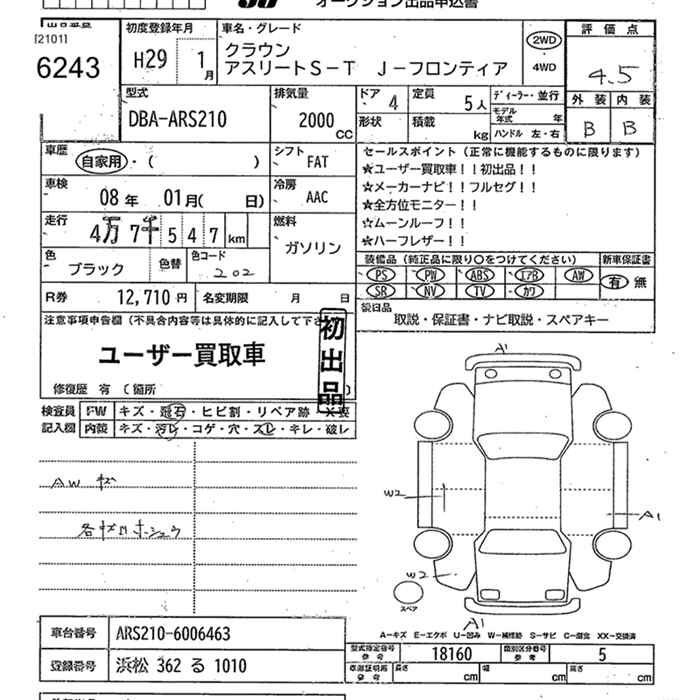 オークション出品申込書
出品番号 [2101] 6243
初度登録年月 H29 1月
車名・グレード クラウン
アスリートS-T J-フロンティア
2WD
4WD
評価点 4.5
外装 内装
B B
型式 DBA-ARS210
排気量 2000 CC
ドア 4 定員 5人
形状 積載 kg
ディーラー・並行
モデル年式 年
ハンドル 左・右
車歴 自家用・( )
シフト FAT
車検 08年 01月( 日)
冷房 AAC
走行 4万7千547km
燃料 ガソリン
色 ブラック 色替 色コード 202
R券 12,710円 名変期限 月 日
セールスポイント(正常に機能するものに限ります)
★ユーザー買取車!!初出品!!
★メーカーナビ!!フルセグ!!
★全方位モニター!!
☆ムーンルーフ!!
★ハーフレザー!!
装備品(純正品に限り○をつけてください) 新車保証書
PS PW ABS エアB AW 有 無
SR NV TV カワ
後日品
取説・保証書・ナビ取説・スペアキー
注意事項申告欄(不具合内容等は具体的に記入して下さ
ユーザー買取車
初出品
修復歴 有(箇所
検査員 FW キズ・飛石・ヒビ割・リペア跡・X要
記入欄 内装 キズ・汚レ・コゲ・穴・スレ・キレ・破レ
AW キズ
各キズ凹ホシュウ
A1
W2
A1
W2
スペア
A1
A-キズ E-エクボ U-凹み W-補修跡 S-サビ C-腐食 XX-交換済
車台番号 ARS210-6006463
登録番号 浜松 362 る 1010
型式指定番号 参考 18160 類別区分番号 参考 5
車庫証明用 参考 長さ cm 幅 cm 高さ cm